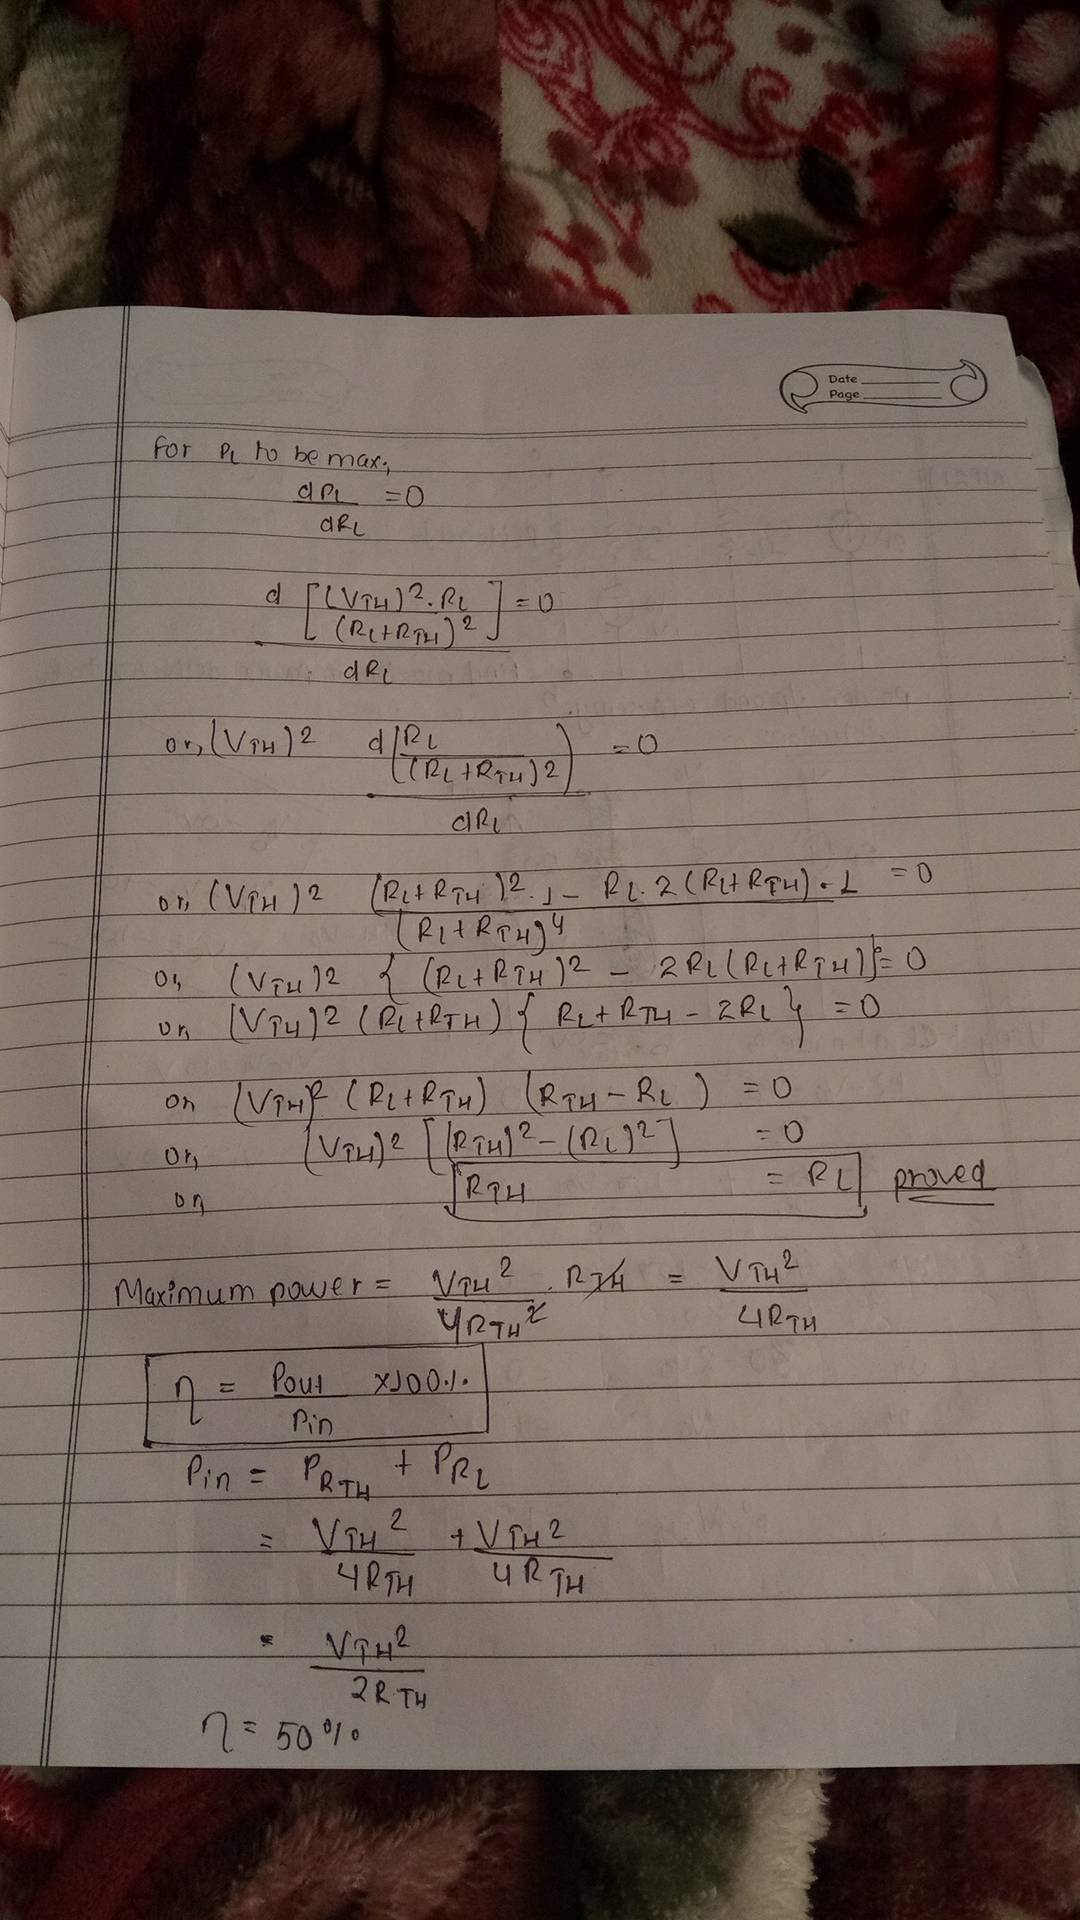 Date
Page
For PL to be max,
dPL/dRL = 0
d[(VTH)^2 . RL/(RL+RTH)^2]/dRL = 0
or, (VTH)^2 d(RL/(RL+RTH)^2)/dRL = 0
or, (VTH)^2 (RL+RTH)^2 . 1 - RL . 2(RL+RTH) . 1/(RL+RTH)^4 = 0
or, (VTH)^2 { (RL+RTH)^2 - 2RL(RL+RTH)} = 0
or, (VTH)^2 (RL+RTH) { RL+RTH - 2RL } = 0
or (VTH)^2 (RL+RTH) (RTH - RL) = 0
or, (VTH)^2 [(RTH)^2 - (RL)^2] = 0
or RTH = RL proved
Maximum power = VTH^2/4RTH^2 . RTH = VTH^2/4RTH
η = Pout/Pin x100%
Pin = PRTH + PRL
= VTH^2/4RTH + VTH^2/4RTH
= VTH^2/2RTH
η = 50%